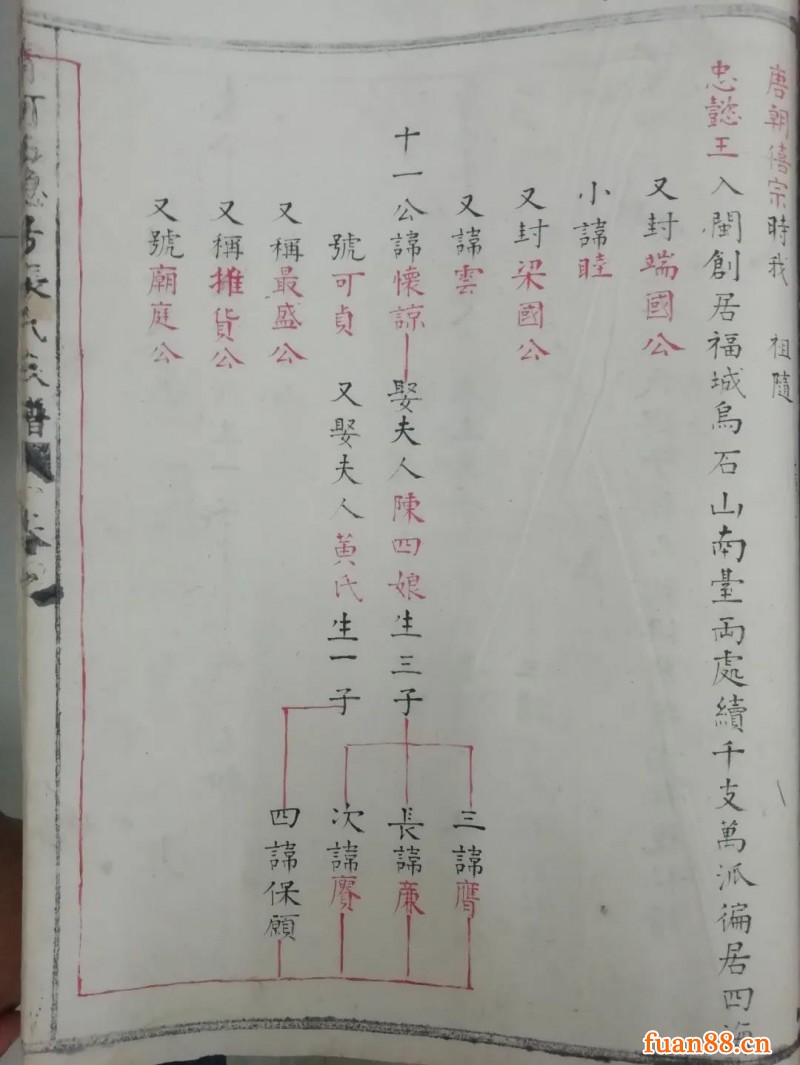 唐朝僖宗時我 祖隨
忠懿王入閩創居福城烏石山南臺兩處續千支萬派徧居四海
又封端國公
小諱睦
又封梁國公
又諱雲
十一公諱懷諒
娶夫人陳四娘生三子
號可貞
又娶夫人黃氏生一子
又稱最盛公
又稱推貨公
又號廟庭公
三諱膺
長諱廉
次諱賡
四諱保願
張氏族譜
fuan88.cn